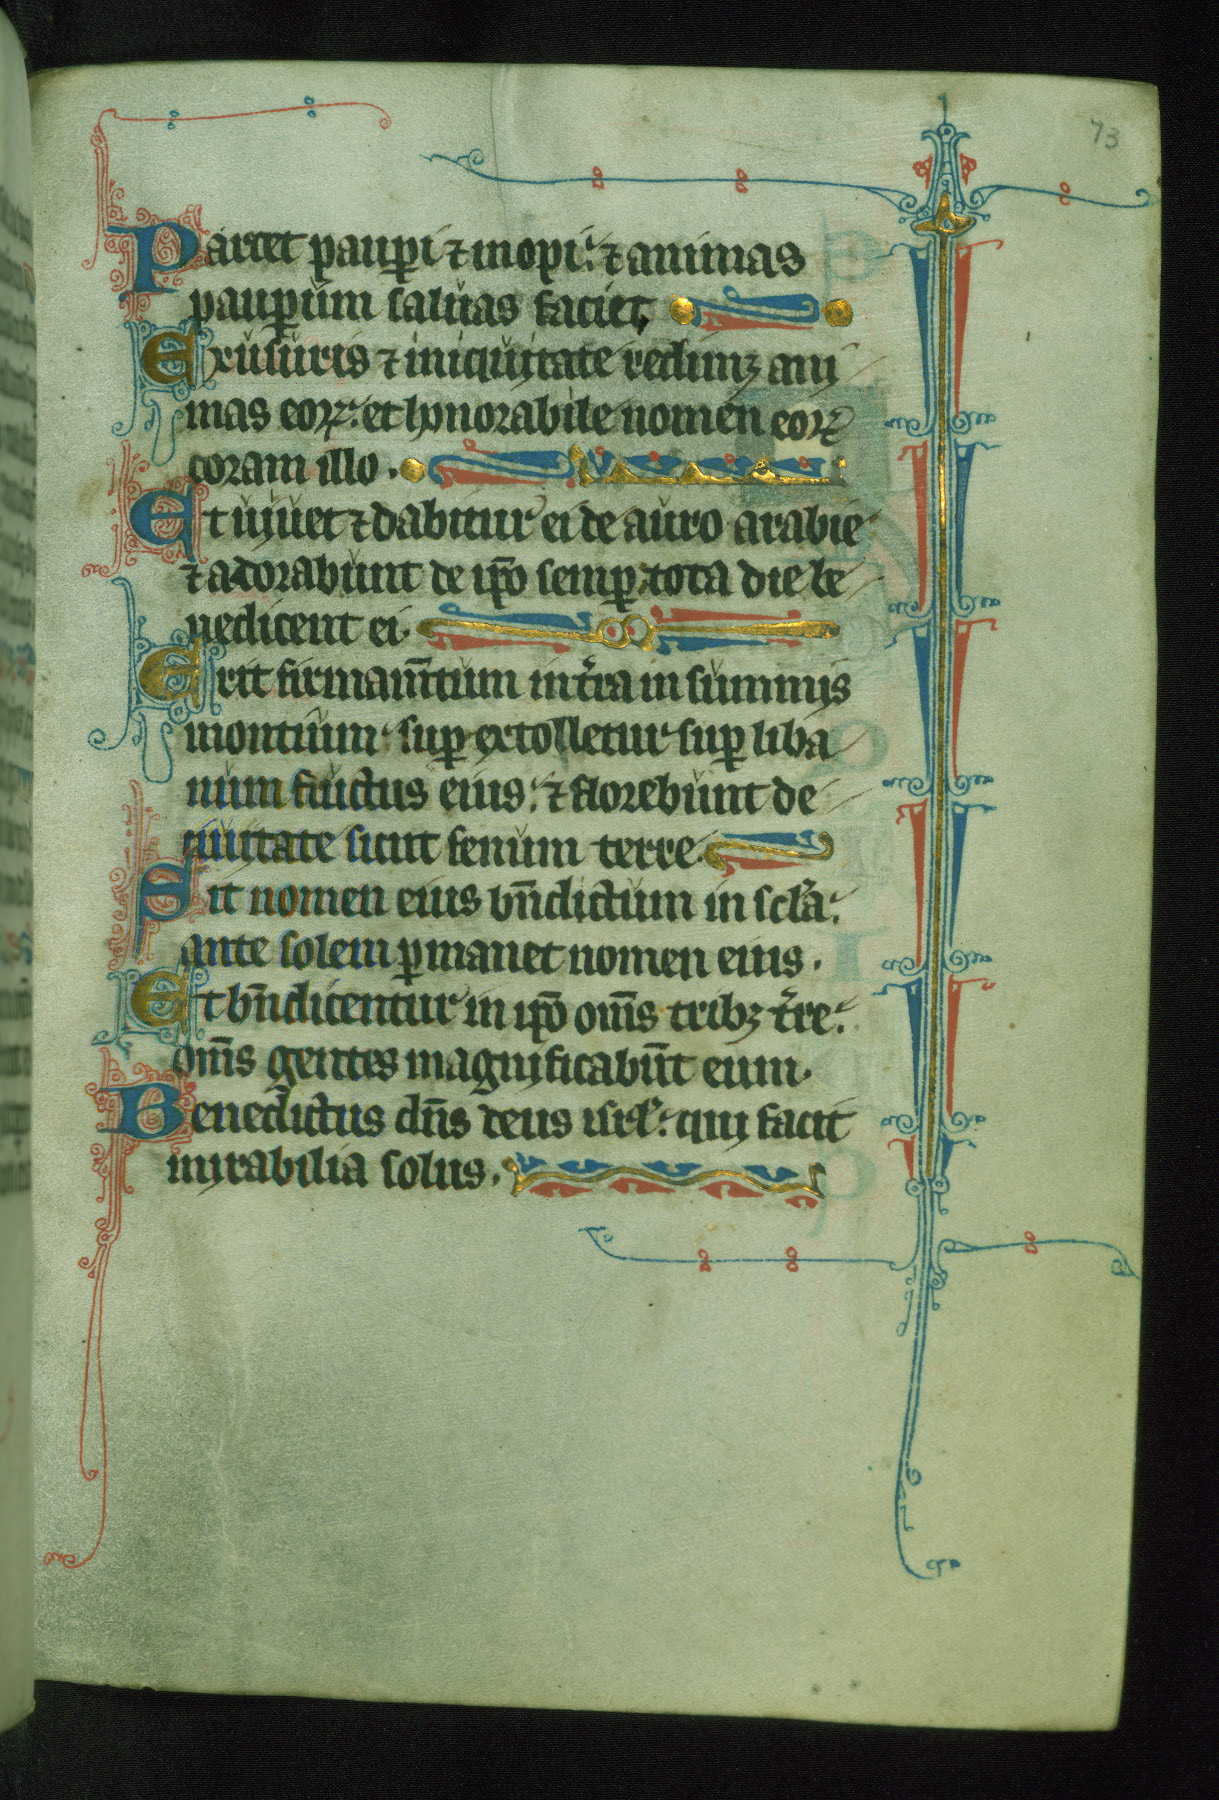 73
Parcet paup̱i ⁊ inopi: ⁊ animas
paup̱um saluas faciet.
Ex usuris ⁊ iniquitate redimꝫ ani
mas eoꝝ: et honorabile nomen eoꝝ
coram illo.
Et uiuet ⁊ dabitur ei de auro arabie
⁊ adorabunt de ip̄o semꝑ tota die be
nedicent ei.
Erit firmam̄tum in t̓ra in summis
montium suꝑ extolletur suꝑ liba
num fructus eius: ⁊ florebunt de
ciuitate sicut fenum terre.
Sit nomen eius bn̄dictum in scl̓a:
ante solem ꝑmanet nomen eius.
Et bn̄dicentur in ip̄o om̄s tribꝫ t̓re:
om̄s gentes magnificabūt eum.
Benedictus dn̄s deus isrl̓: qui facit
mirabilia solus.